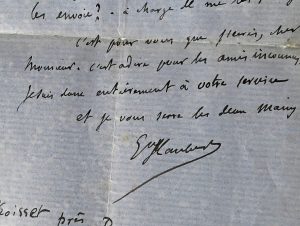 les envoie? - à charge de me les
c'est pour vous que j'écris, cher
Monsieur. c'est à dire pour les amis inconnus
Je suis donc entièrement à votre service
et je vous serre les deux mains
GveFlaubert
Croisset près